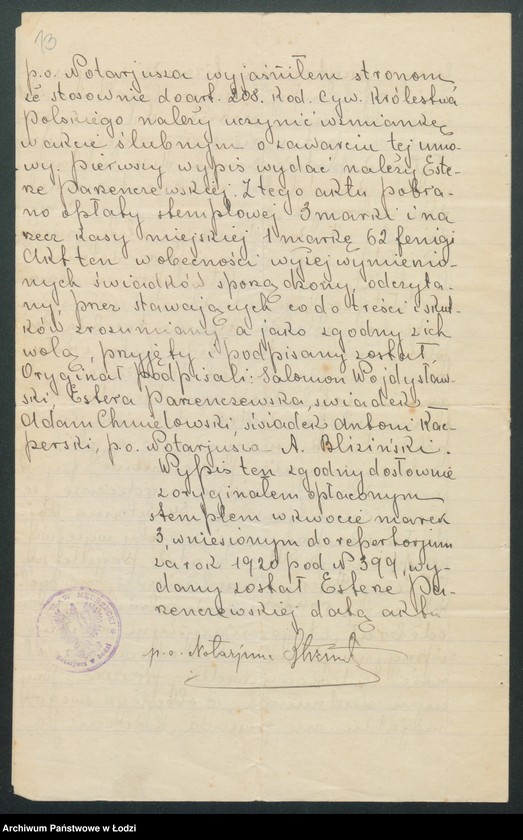 13
p.o. Notarjusza wyjaśniłem stronom
że stosownie do art. 208. Kod. Cyw. Królestwa
Polskiego należy uczynić wzmiankę
w akcie ślubnym o zawarciu tej umo-
wy. Pierwszy wypis wydać należy Este-
rze Parzenczewskiej. Z tego aktu pobra-
no opłaty stemplowej 3 marki i na
rzecz kasy miejskiej 1 markę 62 fenigi
Akt ten w obecności wyżej wymienio-
nych świadków sporządzony, odczyta-
ny, przez stawających co do treści i skut-
ków zrozumiany a jako zgodny z ich
wolą, przyjęty i podpisany został.
Oryginał podpisali: Salomon Wojdysław-
ski, Estera Parzenczewska, świadek
Adam Chmielowski, świadek Antoni Kac-
perski, p.o. Notarjusza A. Bliziński.
Wypis ten zgodny dosłownie
z oryginałem opłaconym
stemplem w kwocie marek
3, wniesionym do repertorjum
za rok 1920 pod N 399, wy-
dany został Esterze Par-
zenczewskiej datą aktu
p.o. Notarjusza
Notarjusz w Łodzi
Archiwum Państwowe w Łodzi